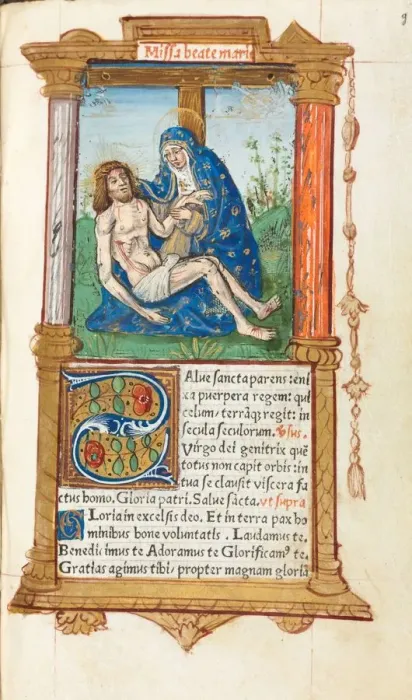 Missa beate marie
Salue sancta parens: eni
xa puerpera regem: qui
celum/ terrāq3 regit: in
secula seculorum. v̄sus.
Virgo dei genitrix quē
totus non capit orbis: in
tua se clausit viscera fa
ctus homo. Gloria patri. Salue sācta. vt supra
Gloria in excelsis deo. Et in terra pax ho
minibus bone voluntatis. Laudamus te.
Benedicimus te Adoramus te Glorificamꝰ te.
Gratias agimus tibi propter magnam gloriā